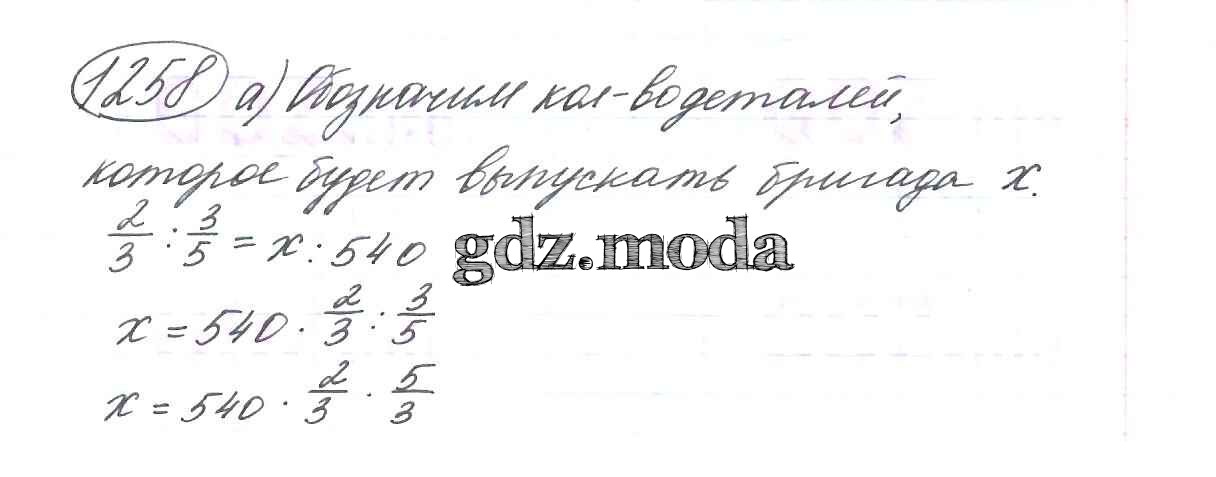 1258 а) Обозначим кол-во деталей,
которое будет выпускать бригада x.
2/3 : 3/5 = x : 540
gdz.moda
x = 540 · 2/3 : 3/5
x = 540 · 2/3 · 5/3